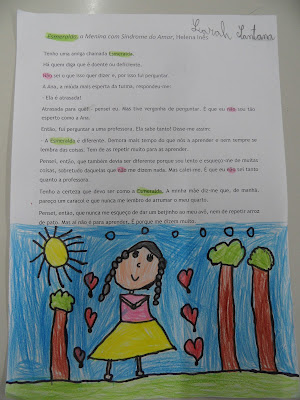 Larah Santana
Esmeralda, a Menina com Síndrome do Amor, Helena Inês
Tenho uma amiga chamada Esmeralda.
Há quem diga que é doente ou deficiente.
Não sei o que isso quer dizer e, por isso fui perguntar.
A Ana, a miúda mais esperta da turma, respondeu-me:
- Ela é atrasada!
Atrasada para quê? - pensei eu. Mas tive vergonha de perguntar. É que eu não sou tão
esperta como a Ana.
Então, fui perguntar a uma professora. Ela sabe tanto! Disse-me assim:
- A Esmeralda é diferente. Demora mais tempo do que nós a aprender e nem sempre se
lembra das coisas. Tem de as repetir muito para as aprender.
Pensei, então, que também devia ser diferente porque sou lenta e esqueço-me de muitas
coisas, sobretudo daquelas que não me dizem nada. Mas calei-me. É que eu não sei tanto
quanto a professora.
Tenho a certeza que devo ser como a Esmeralda. A minha mãe diz-me que, de manhã,
pareço um caracol e que nunca me lembro de arrumar o meu quarto.
Pensei, então, que nunca me esqueço de dar um beijinho ao meu avô, nem de repetir arroz
de pato. Mas aí não é para aprender. É porque me dizem muito.